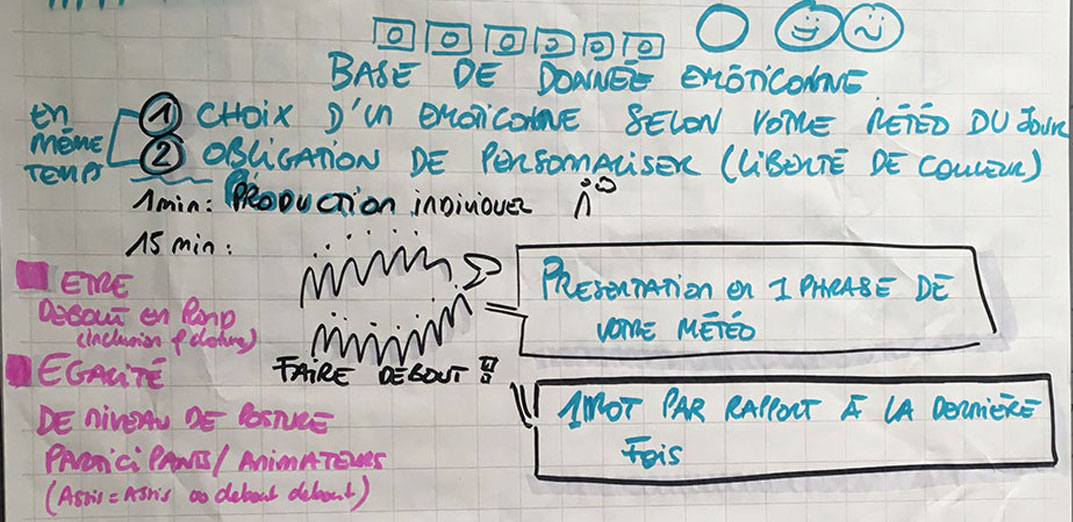 BASE DE DONNÉE EMOTICONNE
EN MÊME TEMPS
1 CHOIX D'UN EMOTICONNE SELON VOTRE MÉTÉO DU JOUR
2 OBLIGATION DE PERSONNALISER (LIBERTÉ DE COULEUR)
1 min: PRODUCTION INDIVIDUEL
15 min:
ETRE
DEBOUT EN ROND
(inclusion
EGALITÉ
DE NIVEAU DE POSTURE
PARTICIPANTS / ANIMATEURS
(Assis = Assis ou debout debout)
FAIRE DEBOUT !!
PRESENTATION en 1 PHRASE DE
VOTRE MÉTÉO
1 MOT PAR RAPPORT À LA DERNIÈRE
FOIS